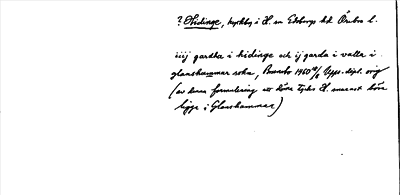 ? Kidinge, kyrkby i H. sn Ekebergs hd Örebro l.
iiij gardha i kidinge och ij garda i valla i
glanshammar sokn, 1460 Upps. dipl. orig
(av denna formulering att döma tycks H. snarast böra
ligga i Glanshammar)